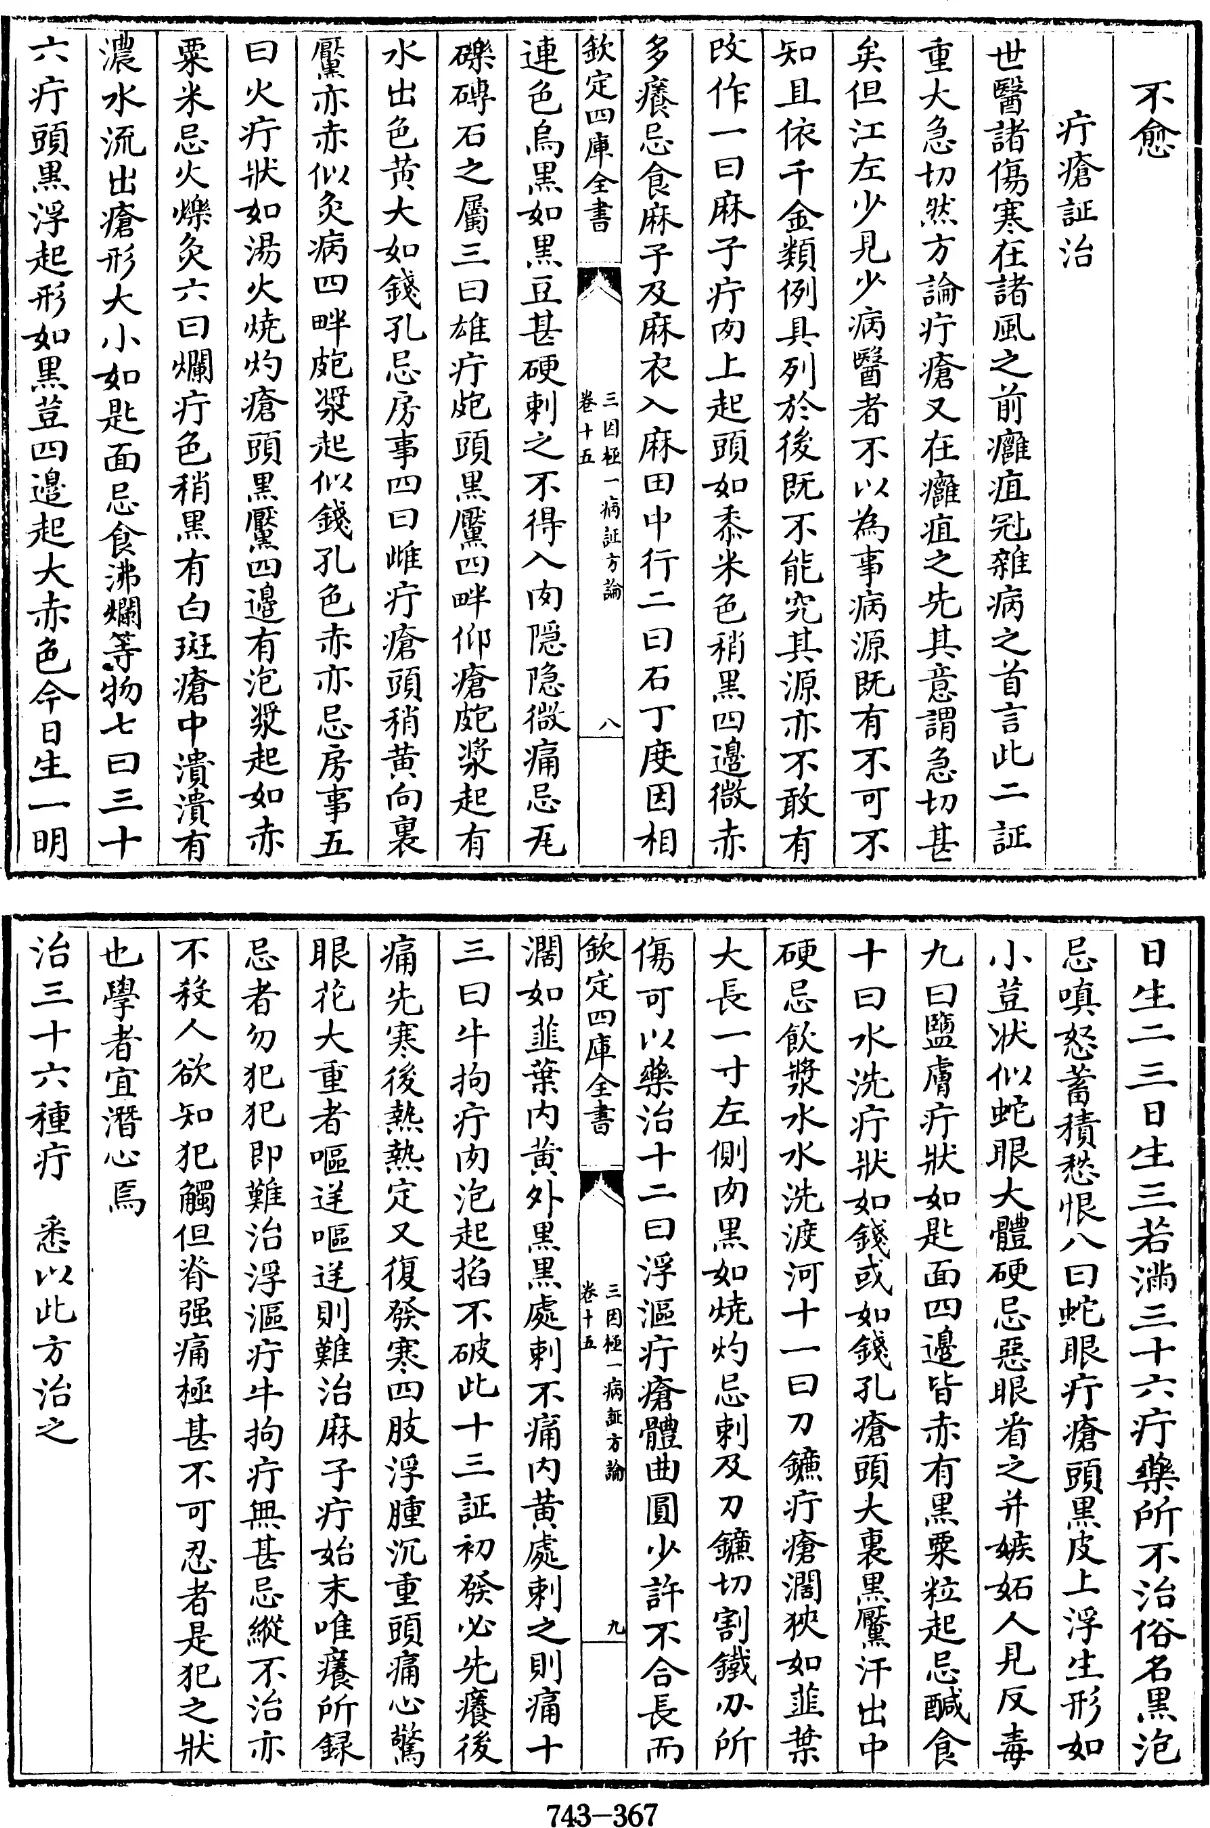 不愈
疔瘡証治
世醫諸傷寒在諸風之前癰疽冠雜病之首言此二証
重大急切然方論疔瘡又在癰疽之先其意謂急切甚
矣但江左少見少病醫者不以為事病源既有不可不
知且依千金類例具列於後既不能究其源亦不敢有
改作一曰麻子疔肉上起頭如黍米色稍黒四邊微赤
多癢忌食麻子及麻衣入麻田中行二曰石丁度因相
欽定四庫全書
三因極一病証方論
卷十五
八
連色烏黒如黒豆甚硬刺之不得入肉隠隠微痛忌瓦
礫磚石之屬三曰雄疔皰頭黒黶四畔仰瘡皰漿起有
水出色黄大如錢孔忌房事四曰雌疔瘡頭稍黄向裏
黶亦赤似灸病四畔皰漿起似錢孔色赤亦忌房事五
曰火疔狀如湯火燒灼瘡頭黒黶四邊有泡漿起如赤
粟米忌火爍灸六曰爛疔色稍黒有白斑瘡中潰潰有
濃水流出瘡形大小如匙面忌食沸爛等物七曰三十
六疔頭黒浮起形如黒荳四邊起大赤色今日生一明
日生二三日生三若滿三十六疔藥所不治俗名黒泡
忌嗔怒蓄積愁恨八曰蛇眼疔瘡頭黒皮上浮生形如
小荳狀似蛇眼大體硬忌惡眼看之并嫉妬人見反毒
九曰鹽膚疔狀如匙面四邊皆赤有黒粟粒起忌醎食
十曰水洗疔狀如錢或如錢孔瘡頭大裏黒黶汗出中
硬忌飲漿水水洗渡河十一曰刀鐮疔瘡濶狹如韭葉
大長一寸左側肉黒如燒灼忌刺及刀鐮切割鐵刅所
傷可以藥治十二曰浮漚疔瘡體曲圓少許不合長而
欽定四庫全書
三因極一病証方論
卷十五
九
濶如韭葉内黄外黒黒處刺不痛内黄處刺之則痛十
三曰牛拘疔肉泡起掐不破此十三証初發必先癢後
痛先寒後熱熱定又復發寒四肢浮腫沉重頭痛心驚
眼花大重者嘔逆嘔逆則難治麻子疔始末唯癢所録
忌者勿犯犯即難治浮漚疔牛拘疔無甚忌縱不治亦
不殺人欲知犯觸但脊强痛極甚不可忍者是犯之狀
也學者宜潛心焉
治三十六種疔　悉以此方治之
743-367